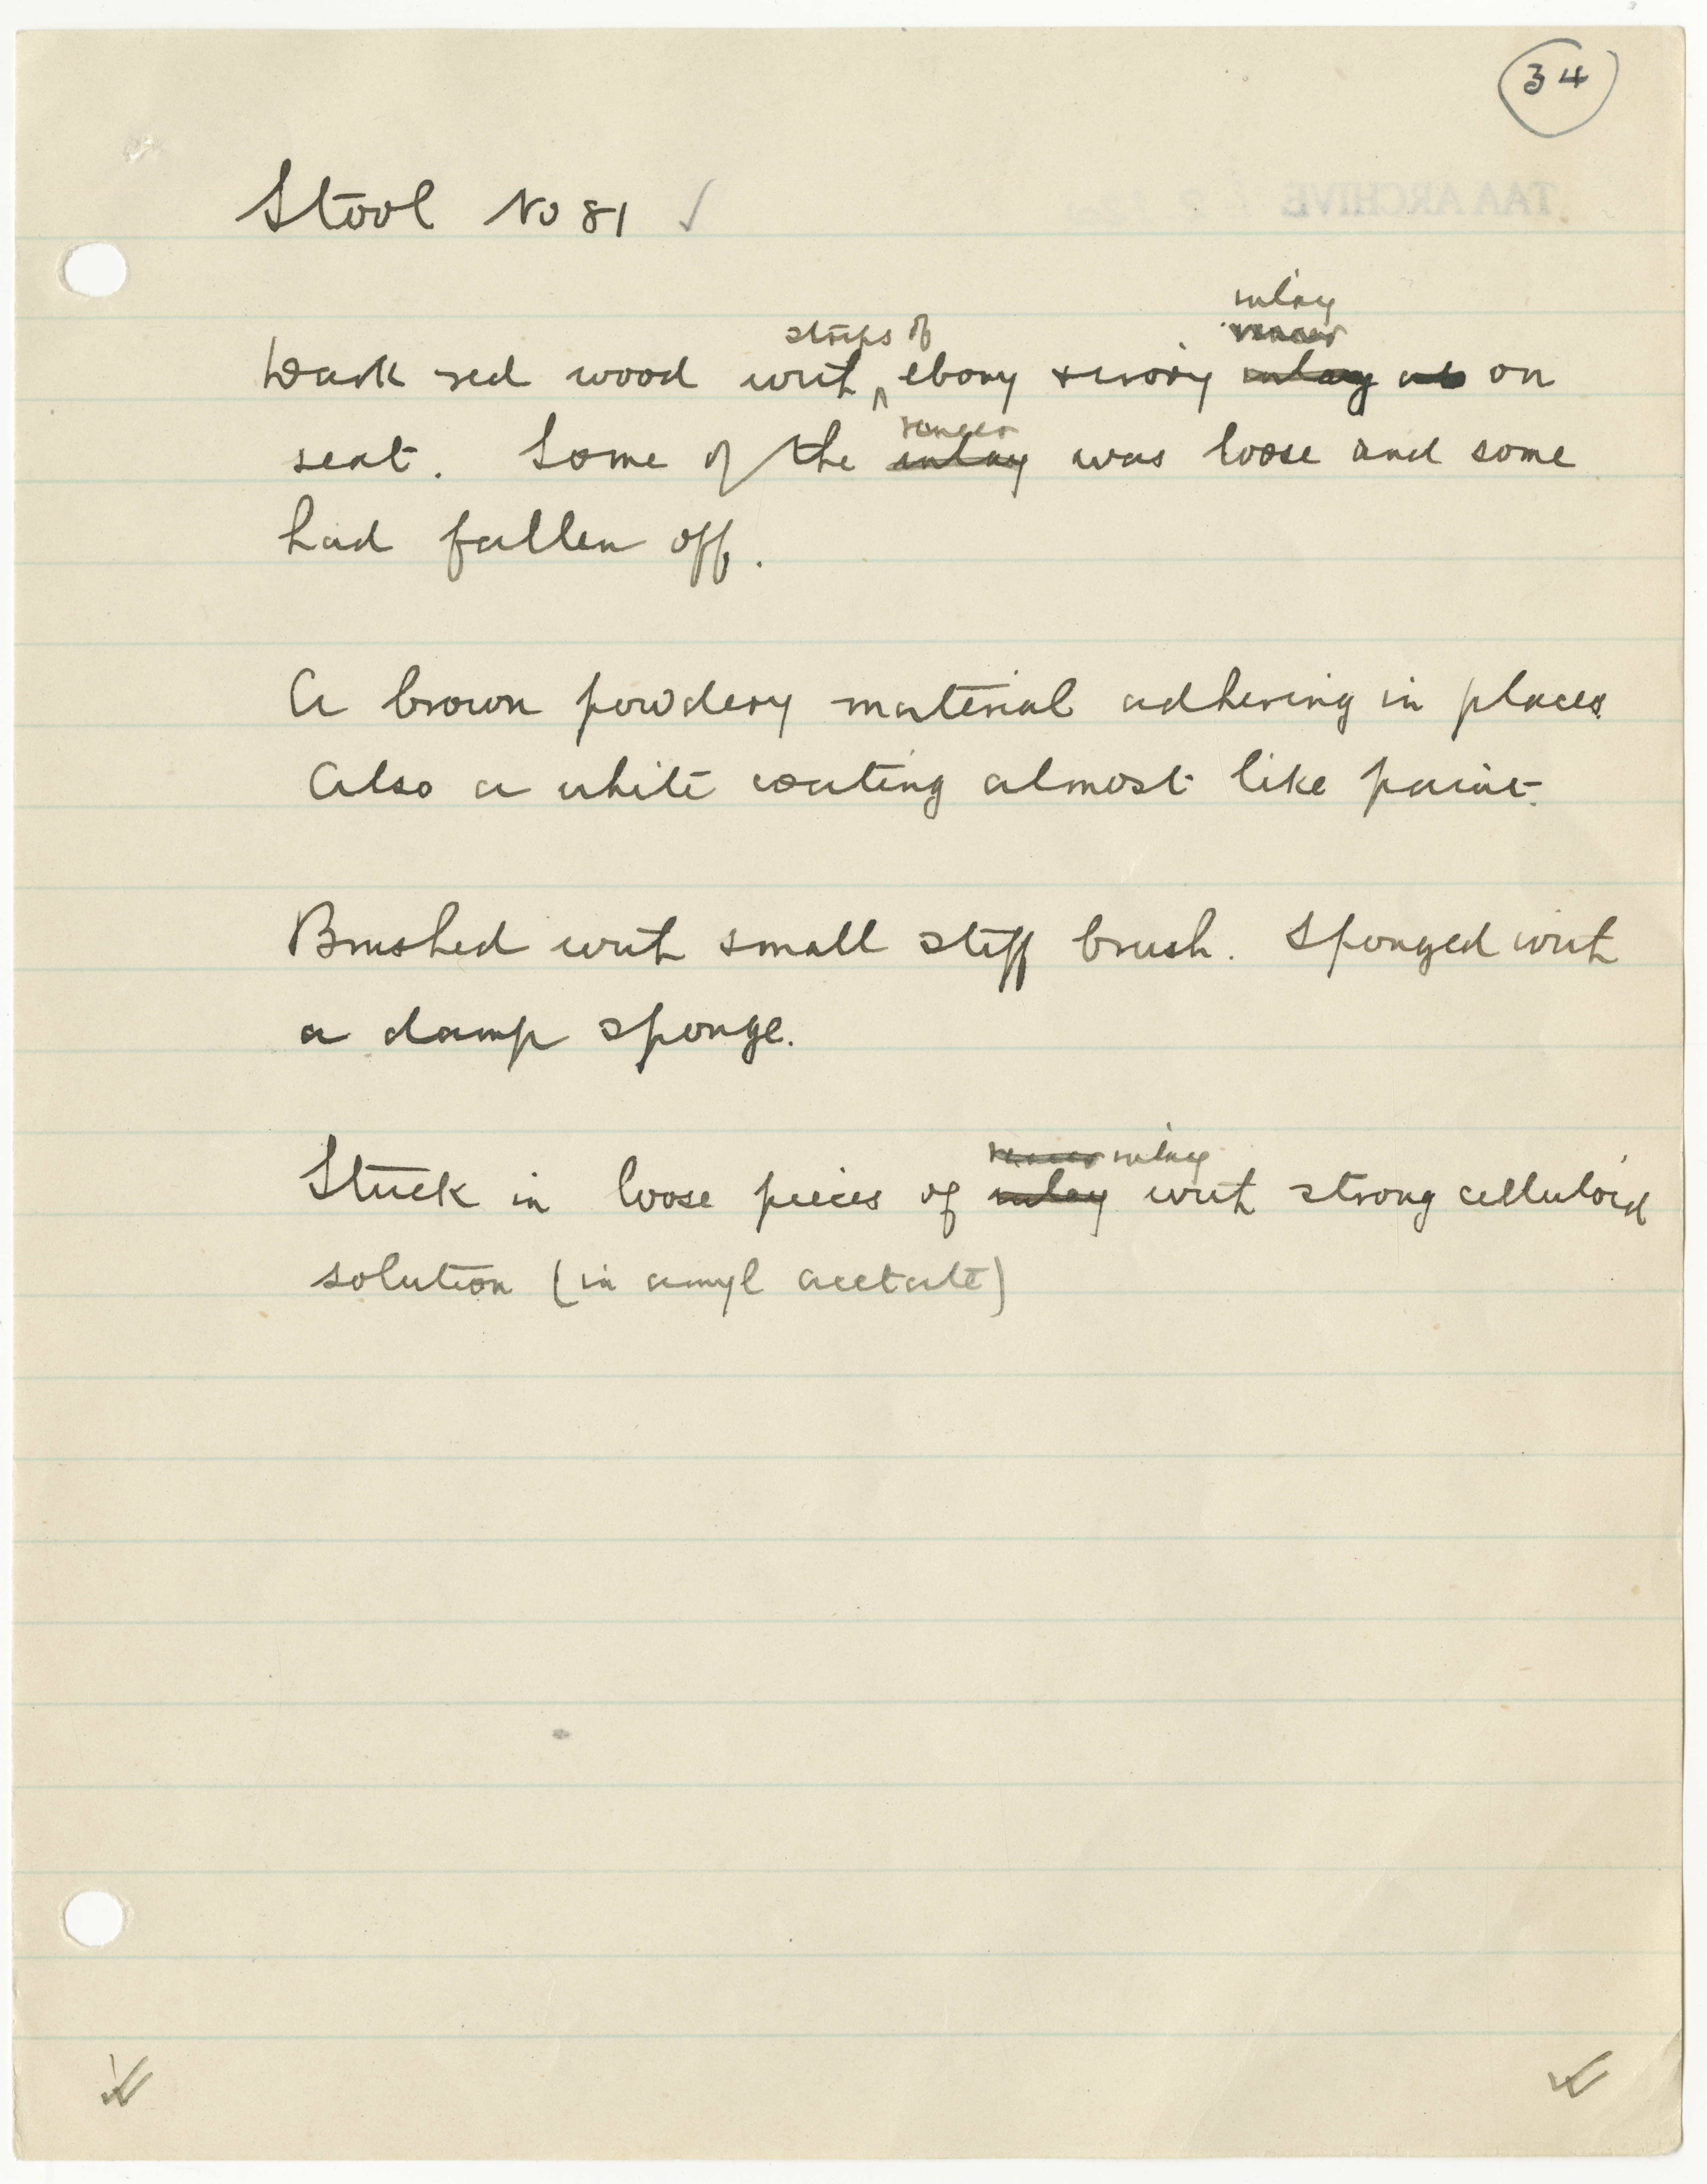 34
Stool No 81 ✓
inlay
strips of veneer
Dark red wood with ^ ebony & ivory inlay on
veneer
seat. Some of the inlay was loose and some
had fallen off.
A brown powdery material adhering in places.
Also a white coating almost like paint.
Brushed with small stiff brush. Sponged with
a damp sponge.
veneer inlay
Stuck in loose pieces of inlay with strong celluloid
solution (in amyl acetate)
TAA ARCHIVE